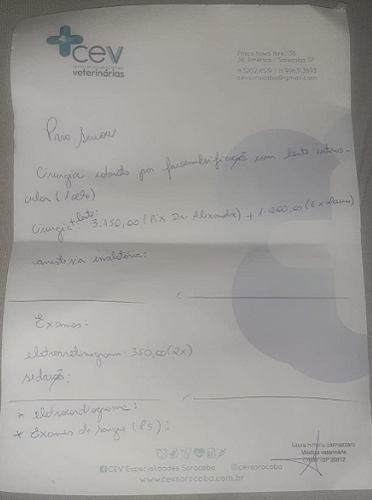 cev
veterinárias
Praça Nova York, 133
Jd. América - Sorocaba SP
cevsorocaba@gmail.com
Para Suzeu
Cirurgia catarata por facoemulsificação com lente intra-
ocular (1 olho)
Cirurgia + lente: 3.450,00 (Pix Dr. Alexandre) + 1.200,00 (6x
anestesia inalatória:
Exames:
eletrorretinograma: 350,00 (2x)
sedação:
* eletrocardiograma:
* Exames de sangue (PS):
Médica veterinária
CEV Especialidades Sorocaba @cevsorocaba
www.cevsorocaba.com.br